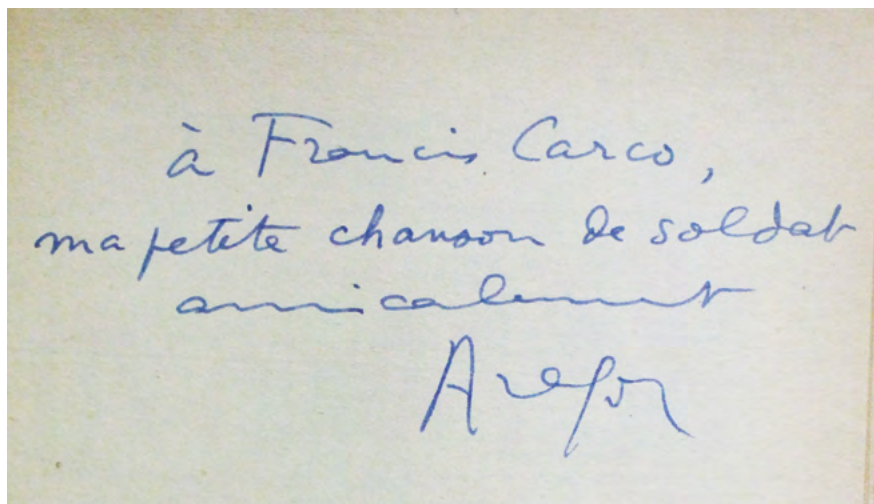 à Francis Carco,
ma petite chanson de soldat
amicalement
Aragon